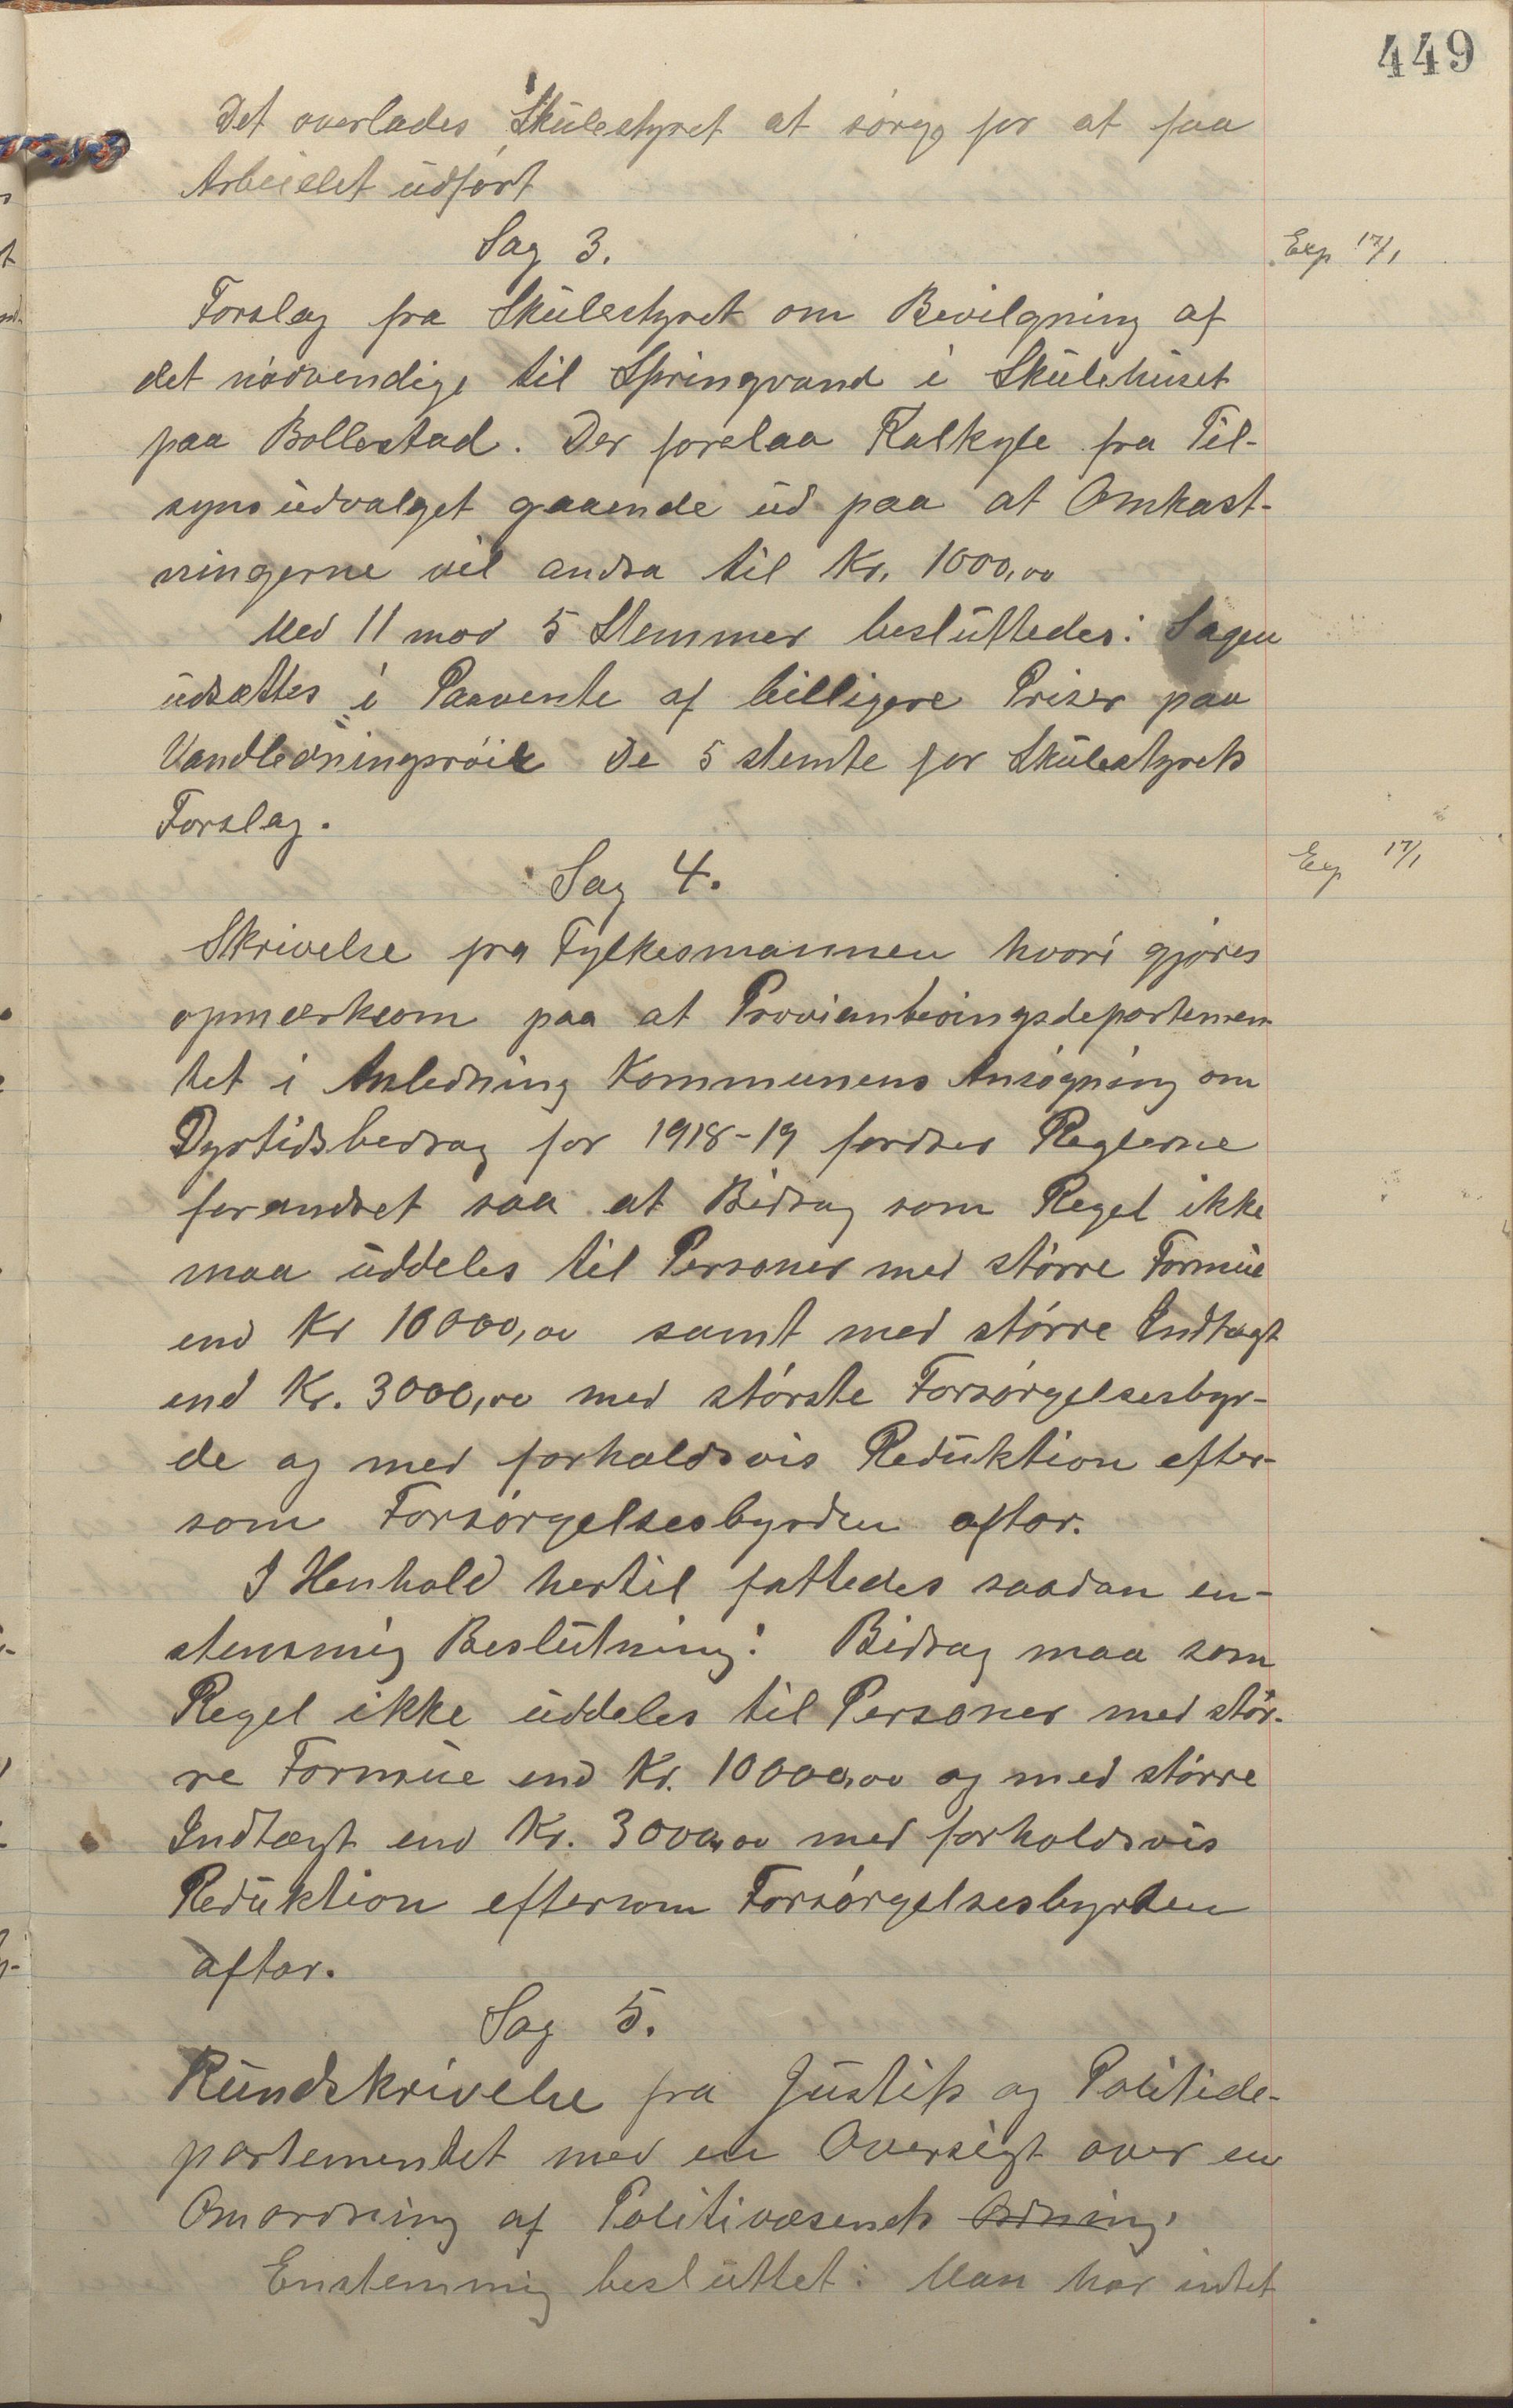 449
Det overlades Skulestyret at sørge for at faa
Arbeidet udført
Sag 3.
Exp 17/1
Forslag fra Skulestyret om Bevilgning af
det nødvendige til Springvand i Skulehuset
paa Bollestad. Der forelaa Kalkyle fra Til-
synsudvalget gaaende ud paa at Omkast-
ningerne vil andra til Kr. 1000,00
Med 11 mod 5 Stemmer besluttedes: Sagen
udsættes i Paavente af billigere Priser paa
Vandledningsrøir De 5 stemte for Skulestyrets
Forslag.
Sag 4.
Exp 17/1
Skrivelse fra Fylkesmannen hvori gjøres
opmerksom paa at Provianteringsdepartemen
tet i Anledning Kommunens Ansøgning om
Dyrtidsbedrag for 1918-19 fordrer Reglerne
forandret saa at Bidrag som Regel ikke
maa uddeles til Personer med større Formue
end Kr 10000,00 samt med større Indtægt
end Kr. 3000,00 med største Forsørgelsesbyr-
de og med forholdsvis Reduktion efter-
som Forsørgelsesbyrden aftar.
I Henhold hertil fattedes saadan en-
stemmig Beslutning: Bidrag maa som
Regel ikke uddeles til Personer med stør-
re Formue end Kr. 10000,00 og med større
Indtægt end Kr. 3000,00 med forholdsvis
Reduktion eftersom Forsørgelsesbyrden
aftar.
Sag 5.
Rundskrivelse fra Justits og Politide-
partementet med en Oversigt over en
Omordning af Politivæsenets Ordning.
Enstemmig besluttet: Man har intet